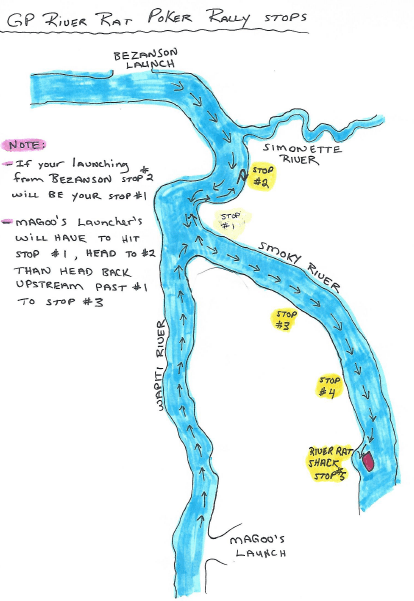 GP RIVER RAT POKER RALLY STOPS
BEZANSON
LAUNCH
SIMONETTE
RIVER
NOTE:
- If your launching
from BEZANSON STOP #2
WILL BE YOUR STOP #1
- MAGOO'S LAUNCHER'S
WILL HAVE TO HIT
STOP #1, HEAD TO #2
THAN HEAD BACK
UPSTREAM PAST #1
TO STOP #3
STOP
#2
STOP
#1
SMOKY RIVER
STOP
#3
WAPITI RIVER
STOP
#4
RIVER RAT
SHACK
STOP #5
MAGOO'S
LAUNCH